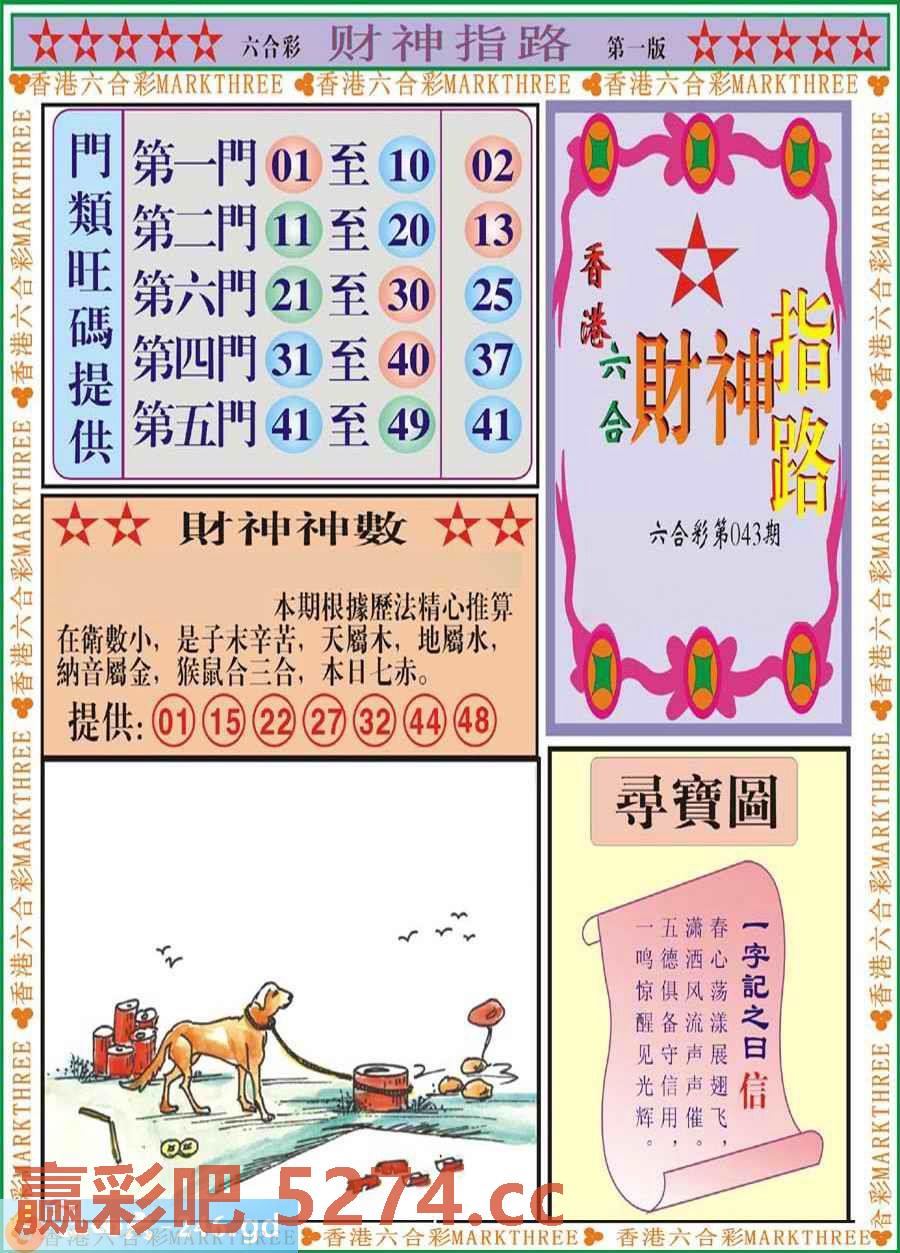 六合彩 财神指路 第一版
香港六合彩MARKTHREE 香港六合彩MARKTHREE 香港六合彩MARKTHREE
門類旺碼提供
第一門 01 至 10 02
第二門 11 至 20 13
第六門 21 至 30 25
第四門 31 至 40 37
第五門 41 至 49 41
香港六合
財神指路
六合彩第043期
財神神數
本期根據歷法精心推算
在衛數小，是子末辛苦，天屬木，地屬水，
納音屬金，猴鼠合三合，本日七赤。
提供: 01 15 22 27 32 44 48
尋寶圖
一字記之日 信
春心荡漾展翅飞，
潇洒风流声声催。
五德俱备守信用，
一鸣惊醒见光辉。
赢彩吧 5274.cc
香港六合彩MARKTHREE 香港六合彩MARKTHREE 香港六合彩MARKTHREE